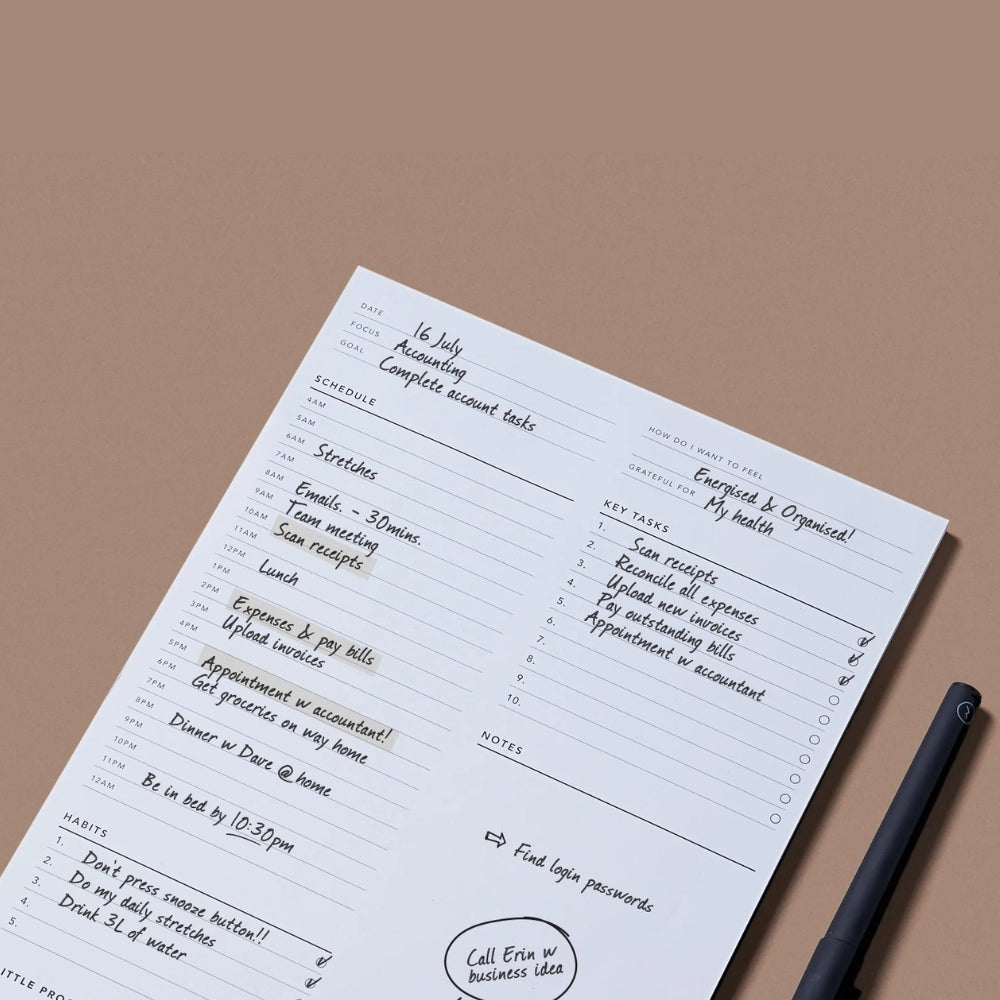 DATE 16 July
FOCUS Accounting
GOAL Complete account tasks
SCHEDULE
4AM
5AM
6AM Stretches
7AM
8AM Emails. - 30mins.
9AM Team meeting
10AM Scan receipts
11AM
12PM Lunch
1PM
2PM Expenses & pay bills
3PM Upload invoices
4PM
5PM Appointment w accountant!
6PM Get groceries on way home
7PM
8PM Dinner w Dave @ home
9PM
10PM Be in bed by 10:30pm
11PM
12AM
HABITS
1. Don't press snooze button!!
2. Do my daily stretches
3. Drink 3L of water
4.
5.
HOW DO I WANT TO FEEL
Energised & Organised!
GRATEFUL FOR My health
KEY TASKS
1. Scan receipts
2. Reconcile all expenses
3. Upload new invoices
4. Pay outstanding bills
5. Appointment w accountant
6.
7.
8.
9.
10.
NOTES
⇨ Find login passwords
Call Erin w
business idea